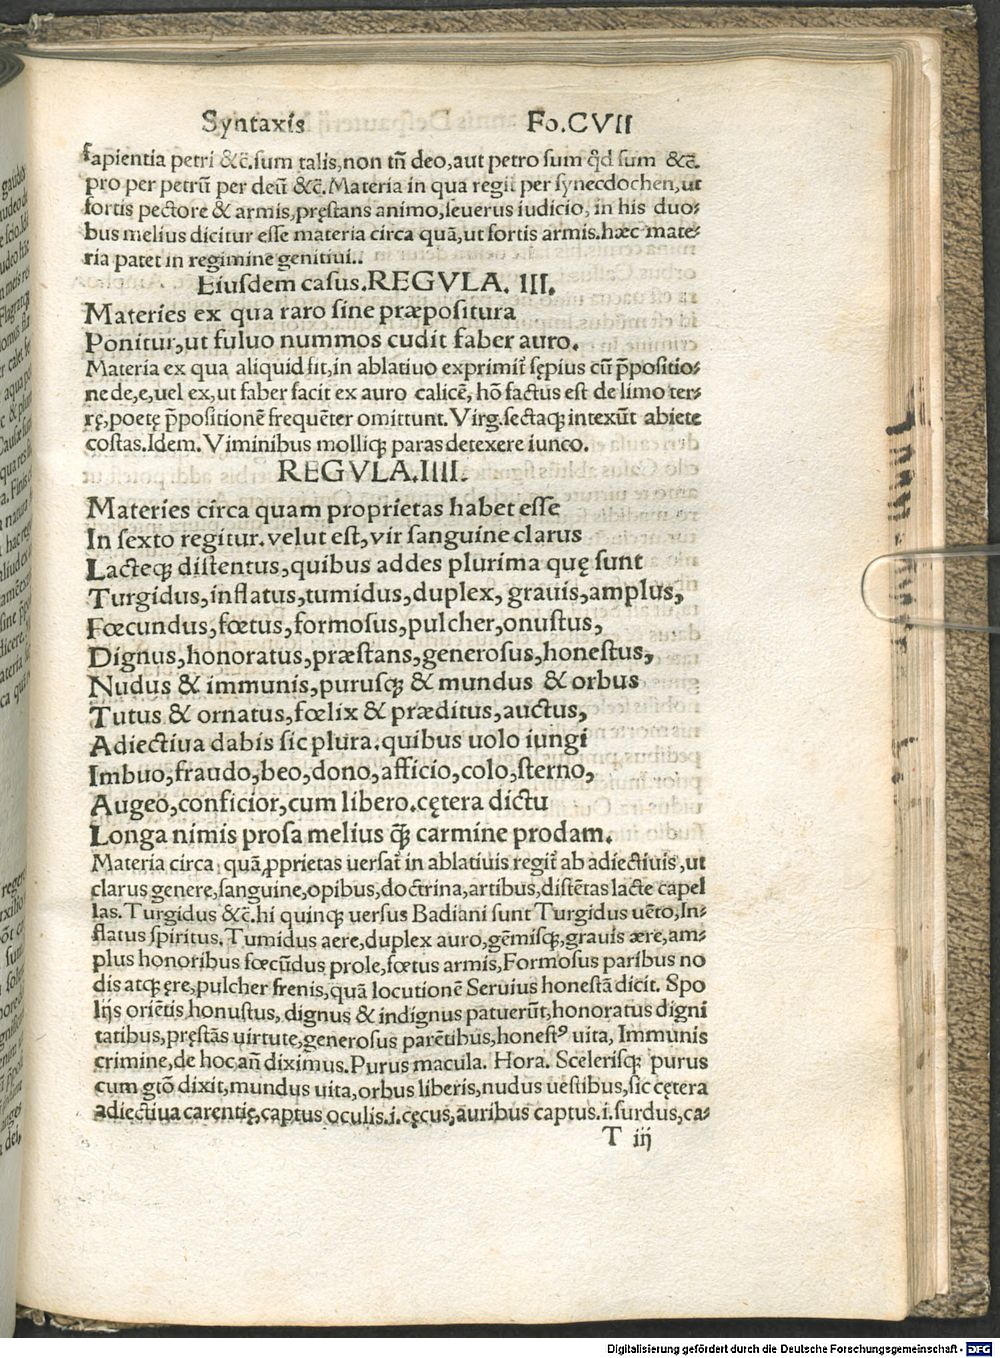 Syntaxis Fo.CVII
sapientia petri &c̄.sum talis,non tn̄ deo,aut petro sum qd̄ sum &c̄.
pro per petrū per deū &c̄.Materia in qua regit per synecdochen,ut
fortis pectore & armis,pręstans animo,seuerus iudicio, in his duo-
bus melius dicitur esse materia circa quā,ut fortis armis.hæc mate-
ria patet in regimine genitiui..
Eiusdem casus.REGVLA. III.
Materies ex qua raro sine præpositura
Ponitur,ut fuluo nummos cudit faber auro.
Materia ex qua aliquid fit,in ablatiuo exprimit̄ sępius cū p̄positio-
ne de,e,uel ex,ut faber facit ex auro calicē, hō factus est de limo ter-
rę,poetę p̄positionē frequēter omittunt. Virg.sectaꝗ intexūt abiete
costas.Idem. Viminibus molliꝗ paras detexere iunco.
REGVLA.IIII.
Materies circa quam proprietas habet esse
In sexto regitur.velut est,vir sanguine clarus
Lacteꝗ distentus,quibus addes plurima quę sunt
Turgidus,inflatus,tumidus,duplex, grauis,amplus,
Fœcundus,fœtus,formosus,pulcher,onustus,
Dignus,honoratus,præstans,generosus,honestus,
Nudus & immunis,purusꝗ & mundus & orbus
Tutus & ornatus,fœlix & præditus,auctus,
Adiectiua dabis sic plura.quibus uolo iungi
Imbuo,fraudo,beo,dono,afficio,colo,sterno,
Augeo,conficior,cum libero.cętera dictu
Longa nimis prosa melius ꝗ̄ carmine prodam.
Materia circa quā ꝓprietas uersat̄ in ablatiuis regit̄ ab adiectiuis,ut
clarus genere,sanguine,opibus,doctrina,artibus,distētas lacte capel
las. Turgidus &c̄.hi quinꝗ uersus Badiani sunt Turgidus uēto,In-
flatus spiritus. Tumidus aere,duplex auro,gēmisꝗ,grauis ære,am-
plus honoribus fœcūdus prole,fœtus armis,Formosus paribus no
dis atꝗ ęre,pulcher frenis,quā locutionē Seruius honestā dicit. Spo
lijs oriētis honustus, dignus & indignus patuerūt,honoratus digni
tatibus,pręstās uirtute,generosus parētibus,honestꝰ uita, Immunis
crimine,de hoc an̄ diximus.Purus macula. Hora. Scelerisꝗ purus
cum gtō dixit,mundus uita,orbus liberis,nudus uestibus,sic cętera
adiectiua carentię,captus oculis.i.cęcus,auribus captus.i.surdus,ca-
T iij
Digitalisierung gefördert durch die Deutsche Forschungsgemeinschaft - DFG